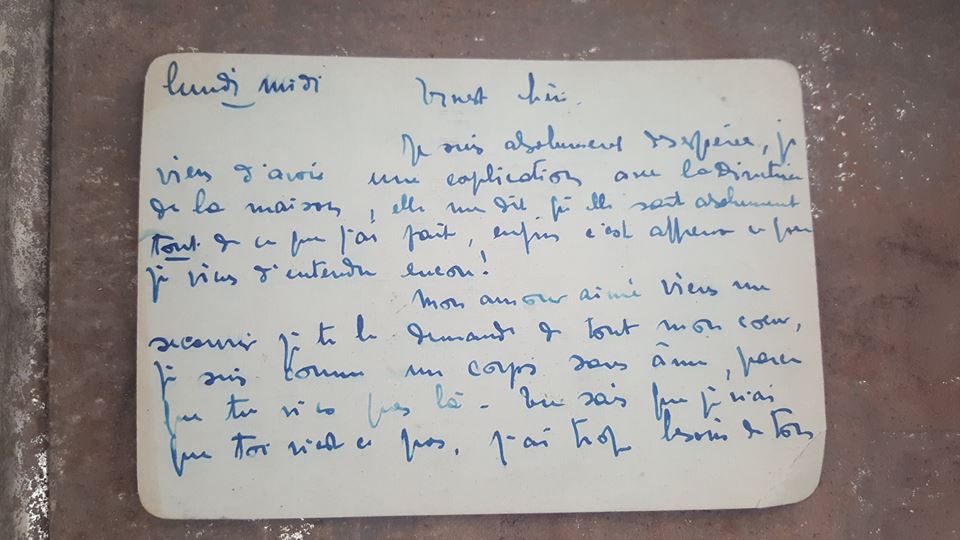 lundi midi
Ernest chéri.
Je suis absolument désespérée, je
viens d'avoir une explication avec la Directrice
de la maison, elle me dit qu'elle sait absolument
tout de ce que j'ai fait, enfin c'est affreux ce que
je viens d'entendre encore!
Mon amour aimé viens me
secourir je te le demande de tout mon cœur,
je suis comme un corps sans âme, parce
que tu n'es pas là - Tu sais que je n'ai
que toi n'est ce pas, j'ai trop besoin de